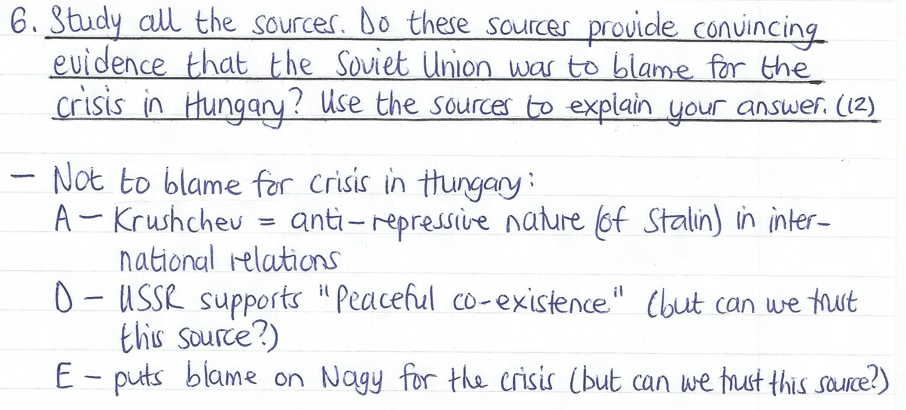 6. Study all the sources. Do these sources provide convincing
evidence that the Soviet Union was to blame for the
crisis in Hungary? Use the sources to explain your answer. (12)
– Not to blame for crisis in Hungary:
A – Krushchev = anti-repressive nature (of Stalin) in inter-
national relations
D – USSR supports "Peaceful co-existence" (but can we trust
this source?)
E – puts blame on Nagy for the crisis (but can we trust this source?)